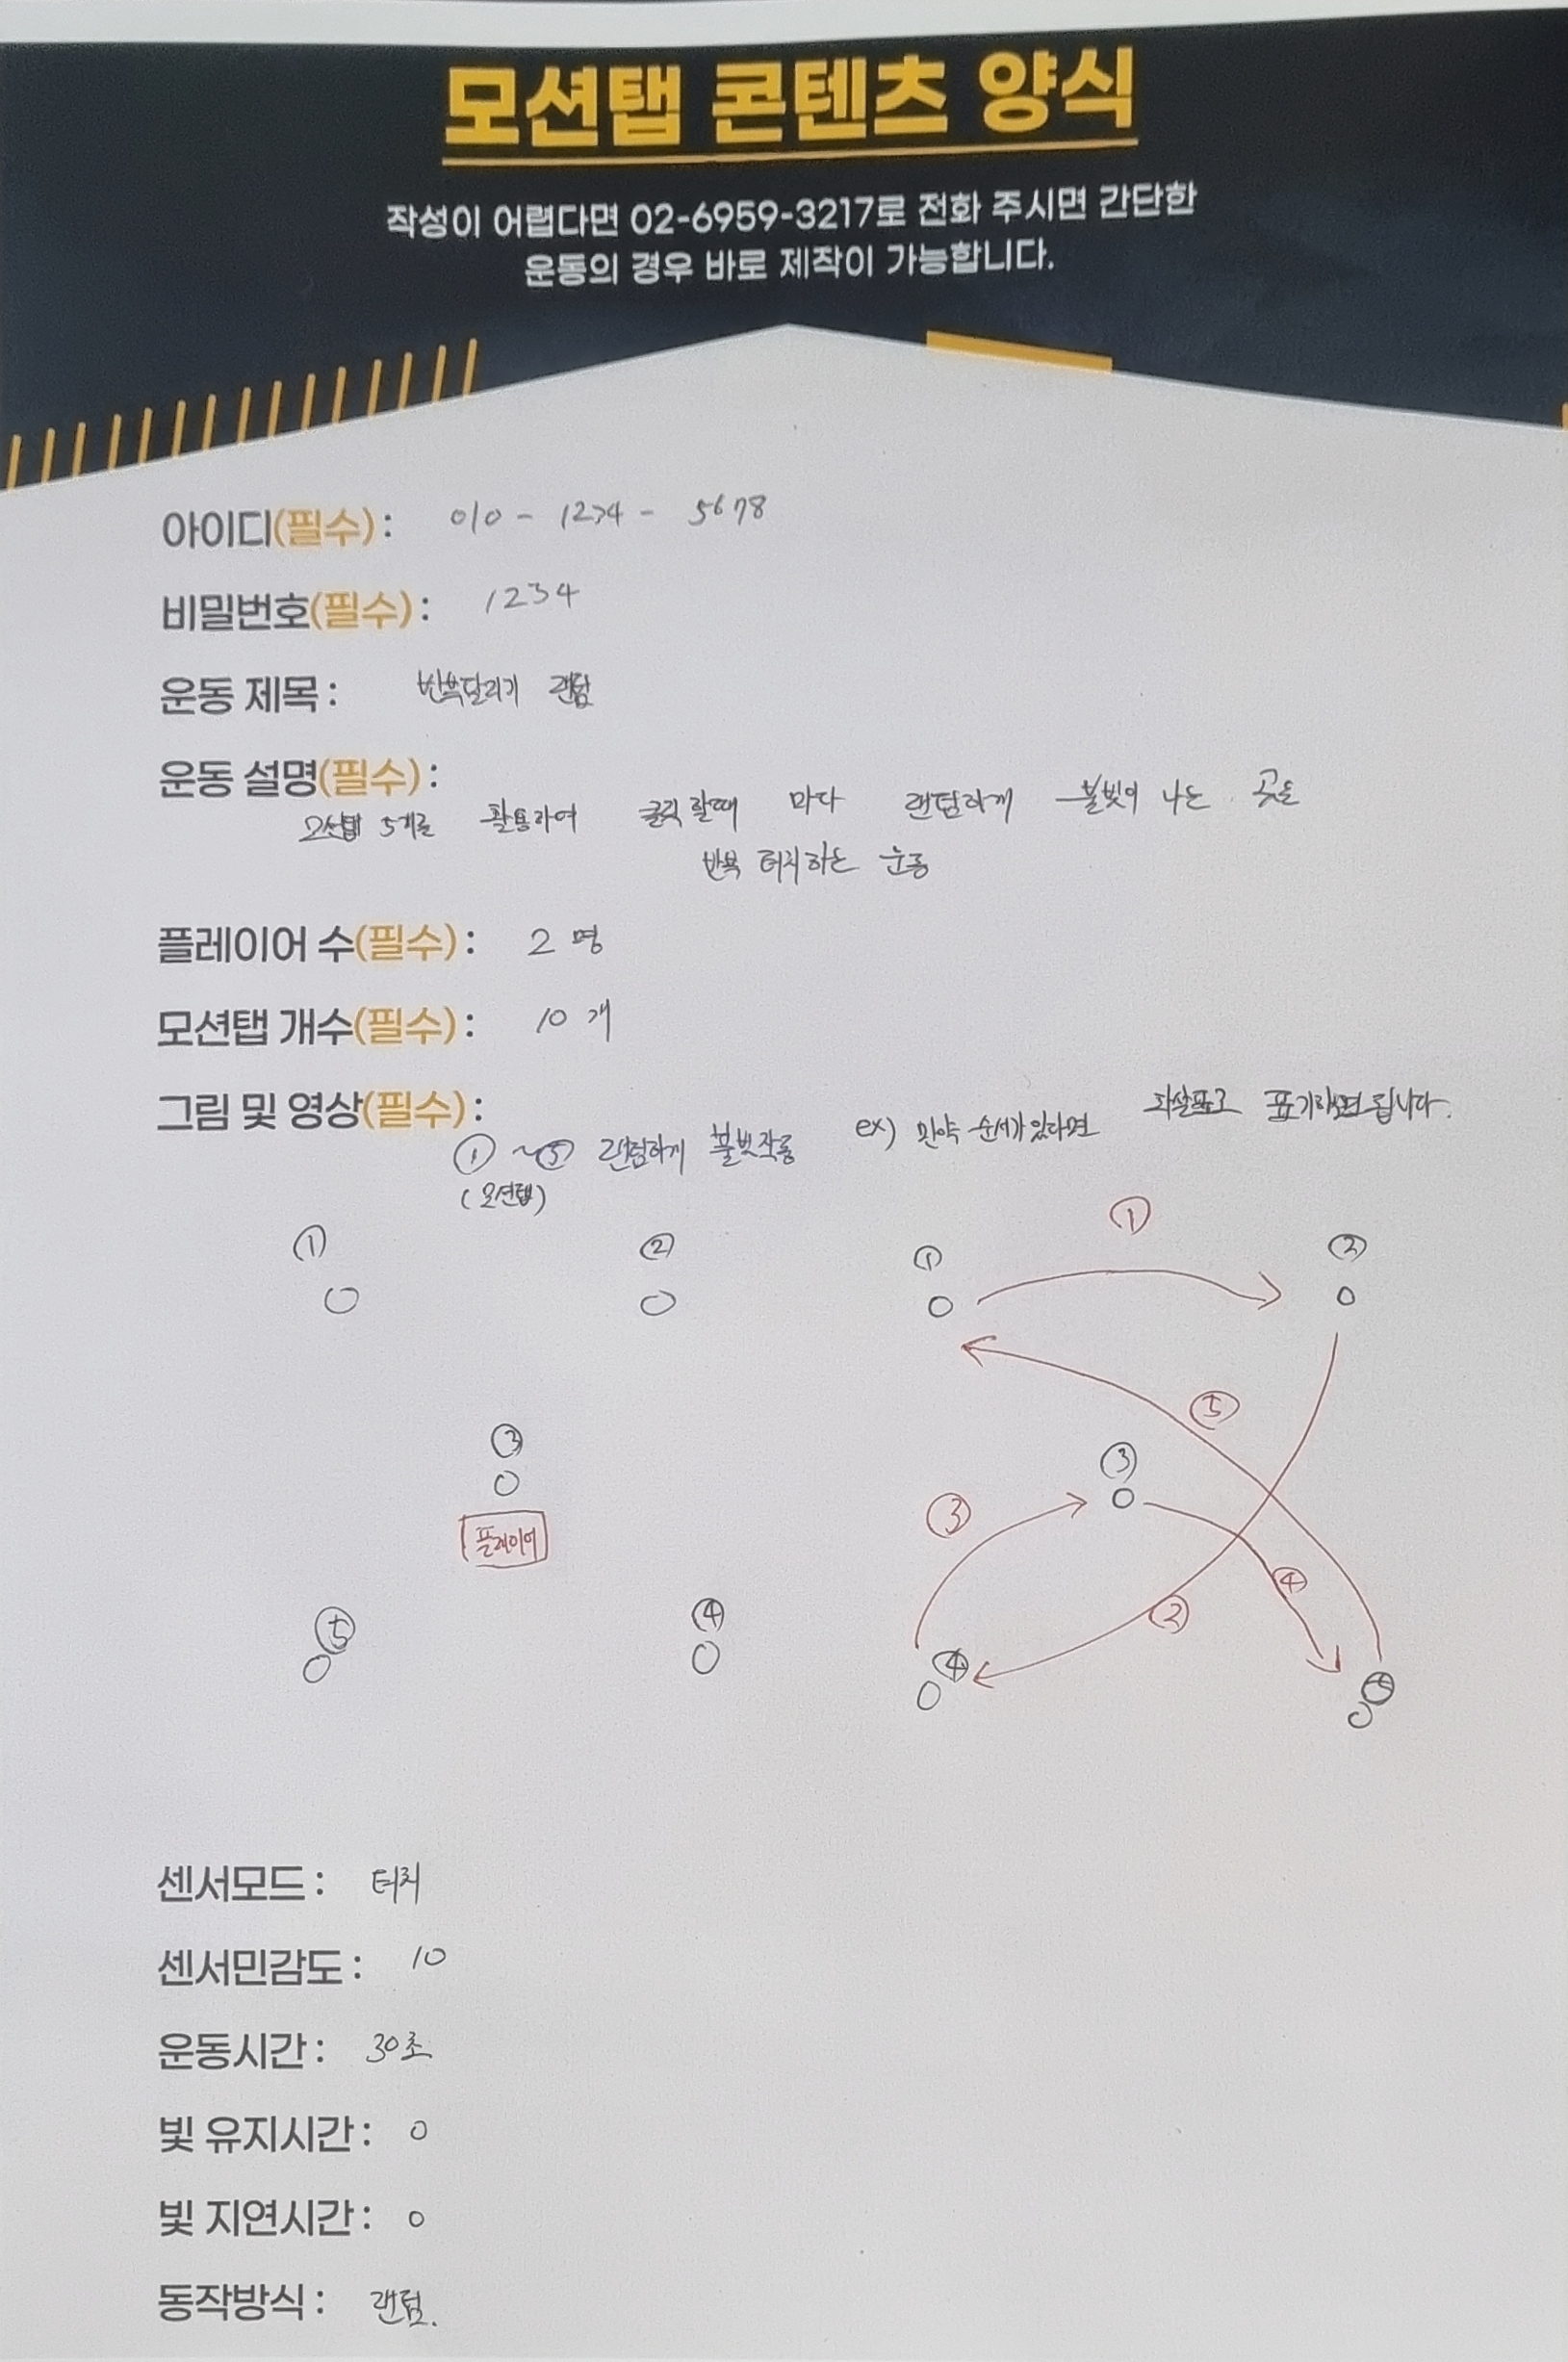 모션탭 콘텐츠 양식
작성이 어렵다면 02-6959-3217로 전화 주시면 간단한
운동의 경우 바로 제작이 가능합니다.
아이디(필수) : 010 - 1234 - 5678
비밀번호(필수) : 1234
운동 제목 : 반복달리기 랜덤
운동 설명(필수) :
모션탭 5개를 활용하여 클릭 할때 마다 랜덤하게 불빛이 나는 곳을
반복 터치하는 운동
플레이어 수(필수) : 2 명
모션탭 개수(필수) : 10 개
그림 및 영상(필수) :
① ~⑤ 랜덤하게 불빛작동
(모션탭)
ex) 만약 순서가 있다면 화살표로 표기하시면 됩니다.
① ②
③
플레이어
⑤ ④
① ① ②
⑤
③ ③
④
②
④ ⑤
센서모드 : 터치
센서민감도 : 10
운동시간 : 30초
빛 유지시간 : 0
빛 지연시간 : 0
동작방식 : 랜덤.